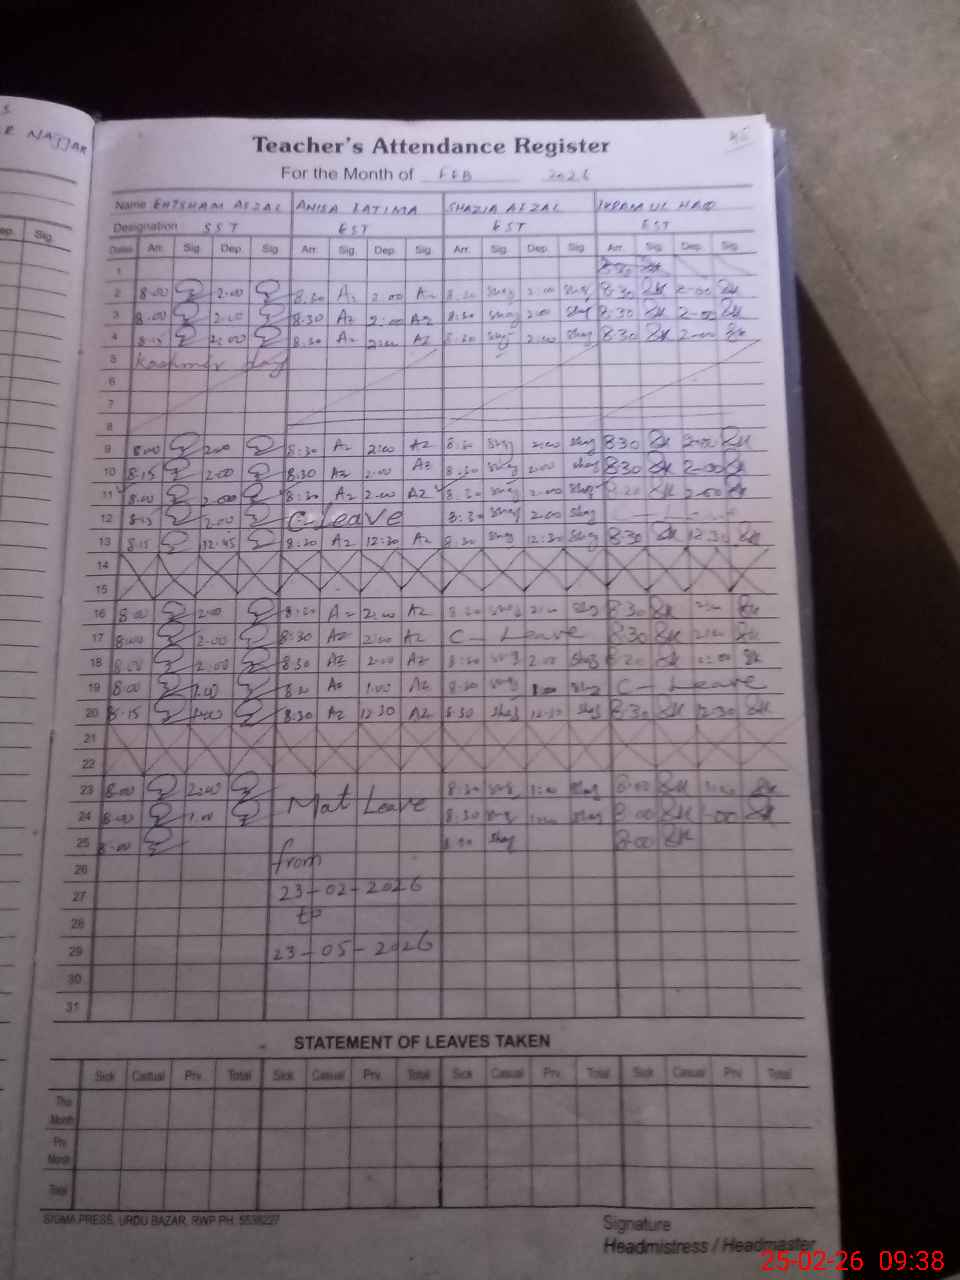 R NAJJAR
Teacher's Attendance Register
For the Month of FEB 2026
Name EHTSHAM AFZAL ANISA FATIMA SHAZIA AFZAL IKRAM UL HAQ
Designation SST EST EST EST
Dates Arr. Sig. Dep. Sig Arr. Sig. Dep. Sig. Arr. Sig. Dep. Sig. Arr. Sig. Dep. Sig.
ep. Sig.
1 8-30
2 8.00 2.00 8.30 Az 2.00 Az 8.30 Shaz 2.00 Shaz 8-30 2-00
3 8.00 2.00 8.30 Az 2.00 Az 8:30 Shaz 2.00 Shaz 8-30 2-00
4 8.15 2.00 8.30 Az 2.00 Az 8.30 Shaz 2.00 Shaz 8-30 2-00
5 Kashmir day
6
7
8
9 8.00 2.00 8.30 Az 2.00 Az 8.30 Shaz 2.00 Shaz 8-30 2-00
10 8.15 2.00 8.30 Az 2.00 Az 8.30 Shaz 2.00 Shaz 8-30 2-00
11 8.00 2.00 8.30 Az 2.00 Az 8.30 Shaz 2.00 Shaz 8-30 2-00
12 8.15 2.00 C-Leave 8:30 Shaz 2.00 Shaz C-Leave
13 8.15 12.45 8:30 Az 12:30 Az 8.30 Shaz 12:30 Shaz 8-30 12-30
14
15
16 8.00 2.00 8.30 Az 2.00 Az 8.30 Shaz 2.00 Shaz 8-30 2.00
17 8.00 2.00 8:30 Az 2.00 Az C- Leave 8-30 2.00
18 8.00 2.00 8.30 Az 2.00 Az 8.30 Shaz 2.00 Shaz 8-30
19 8.00 1.00 Az 1.00 Az 8.30 Shaz 1.00 Shaz C- Leave
20 8.15 8:30 Az 12.30 Az 8.30 Shaz 12:30 Shaz 8-30 12-30
21
22
23 8.00 8.30 Shaz 1.00 Shaz 8-00 1.00
24 8.00 1.00 Mat Leave 8.30 Shaz 1.00 Shaz 8-00 1-00
25 8.00 Shaz 8-00
26 from
27 23-02-2026
28 to
29 23-05-2026
30
31
STATEMENT OF LEAVES TAKEN
Sick Casual Prv. Total Sick Casual Prv. Total Sick Casual Prv. Total Sick Casual Prv Total
This
Month
Prv.
Month
Total
SIGMA PRESS, URDU BAZAR, RWP PH: 5538227
Signature
Headmistress / Headmaster
25-02-26 09:38